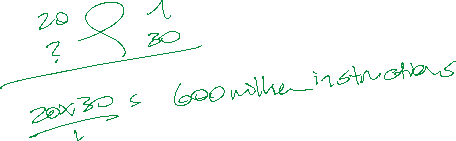 20 1
? 30
20x30 = 600 million instructions
1